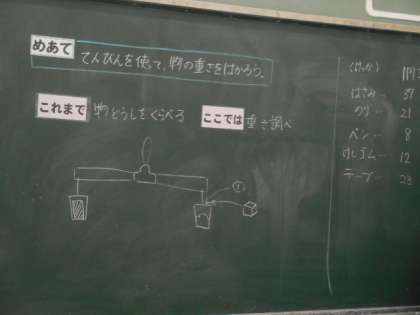 めあて てんびんを使って、物の重さをはかろう。
これまで 物どうしをくらべる
ここでは 重さ調べ
①
はさみ… 37
のり… 21
ペン… 8
けしゴム… 12
テープ… 23